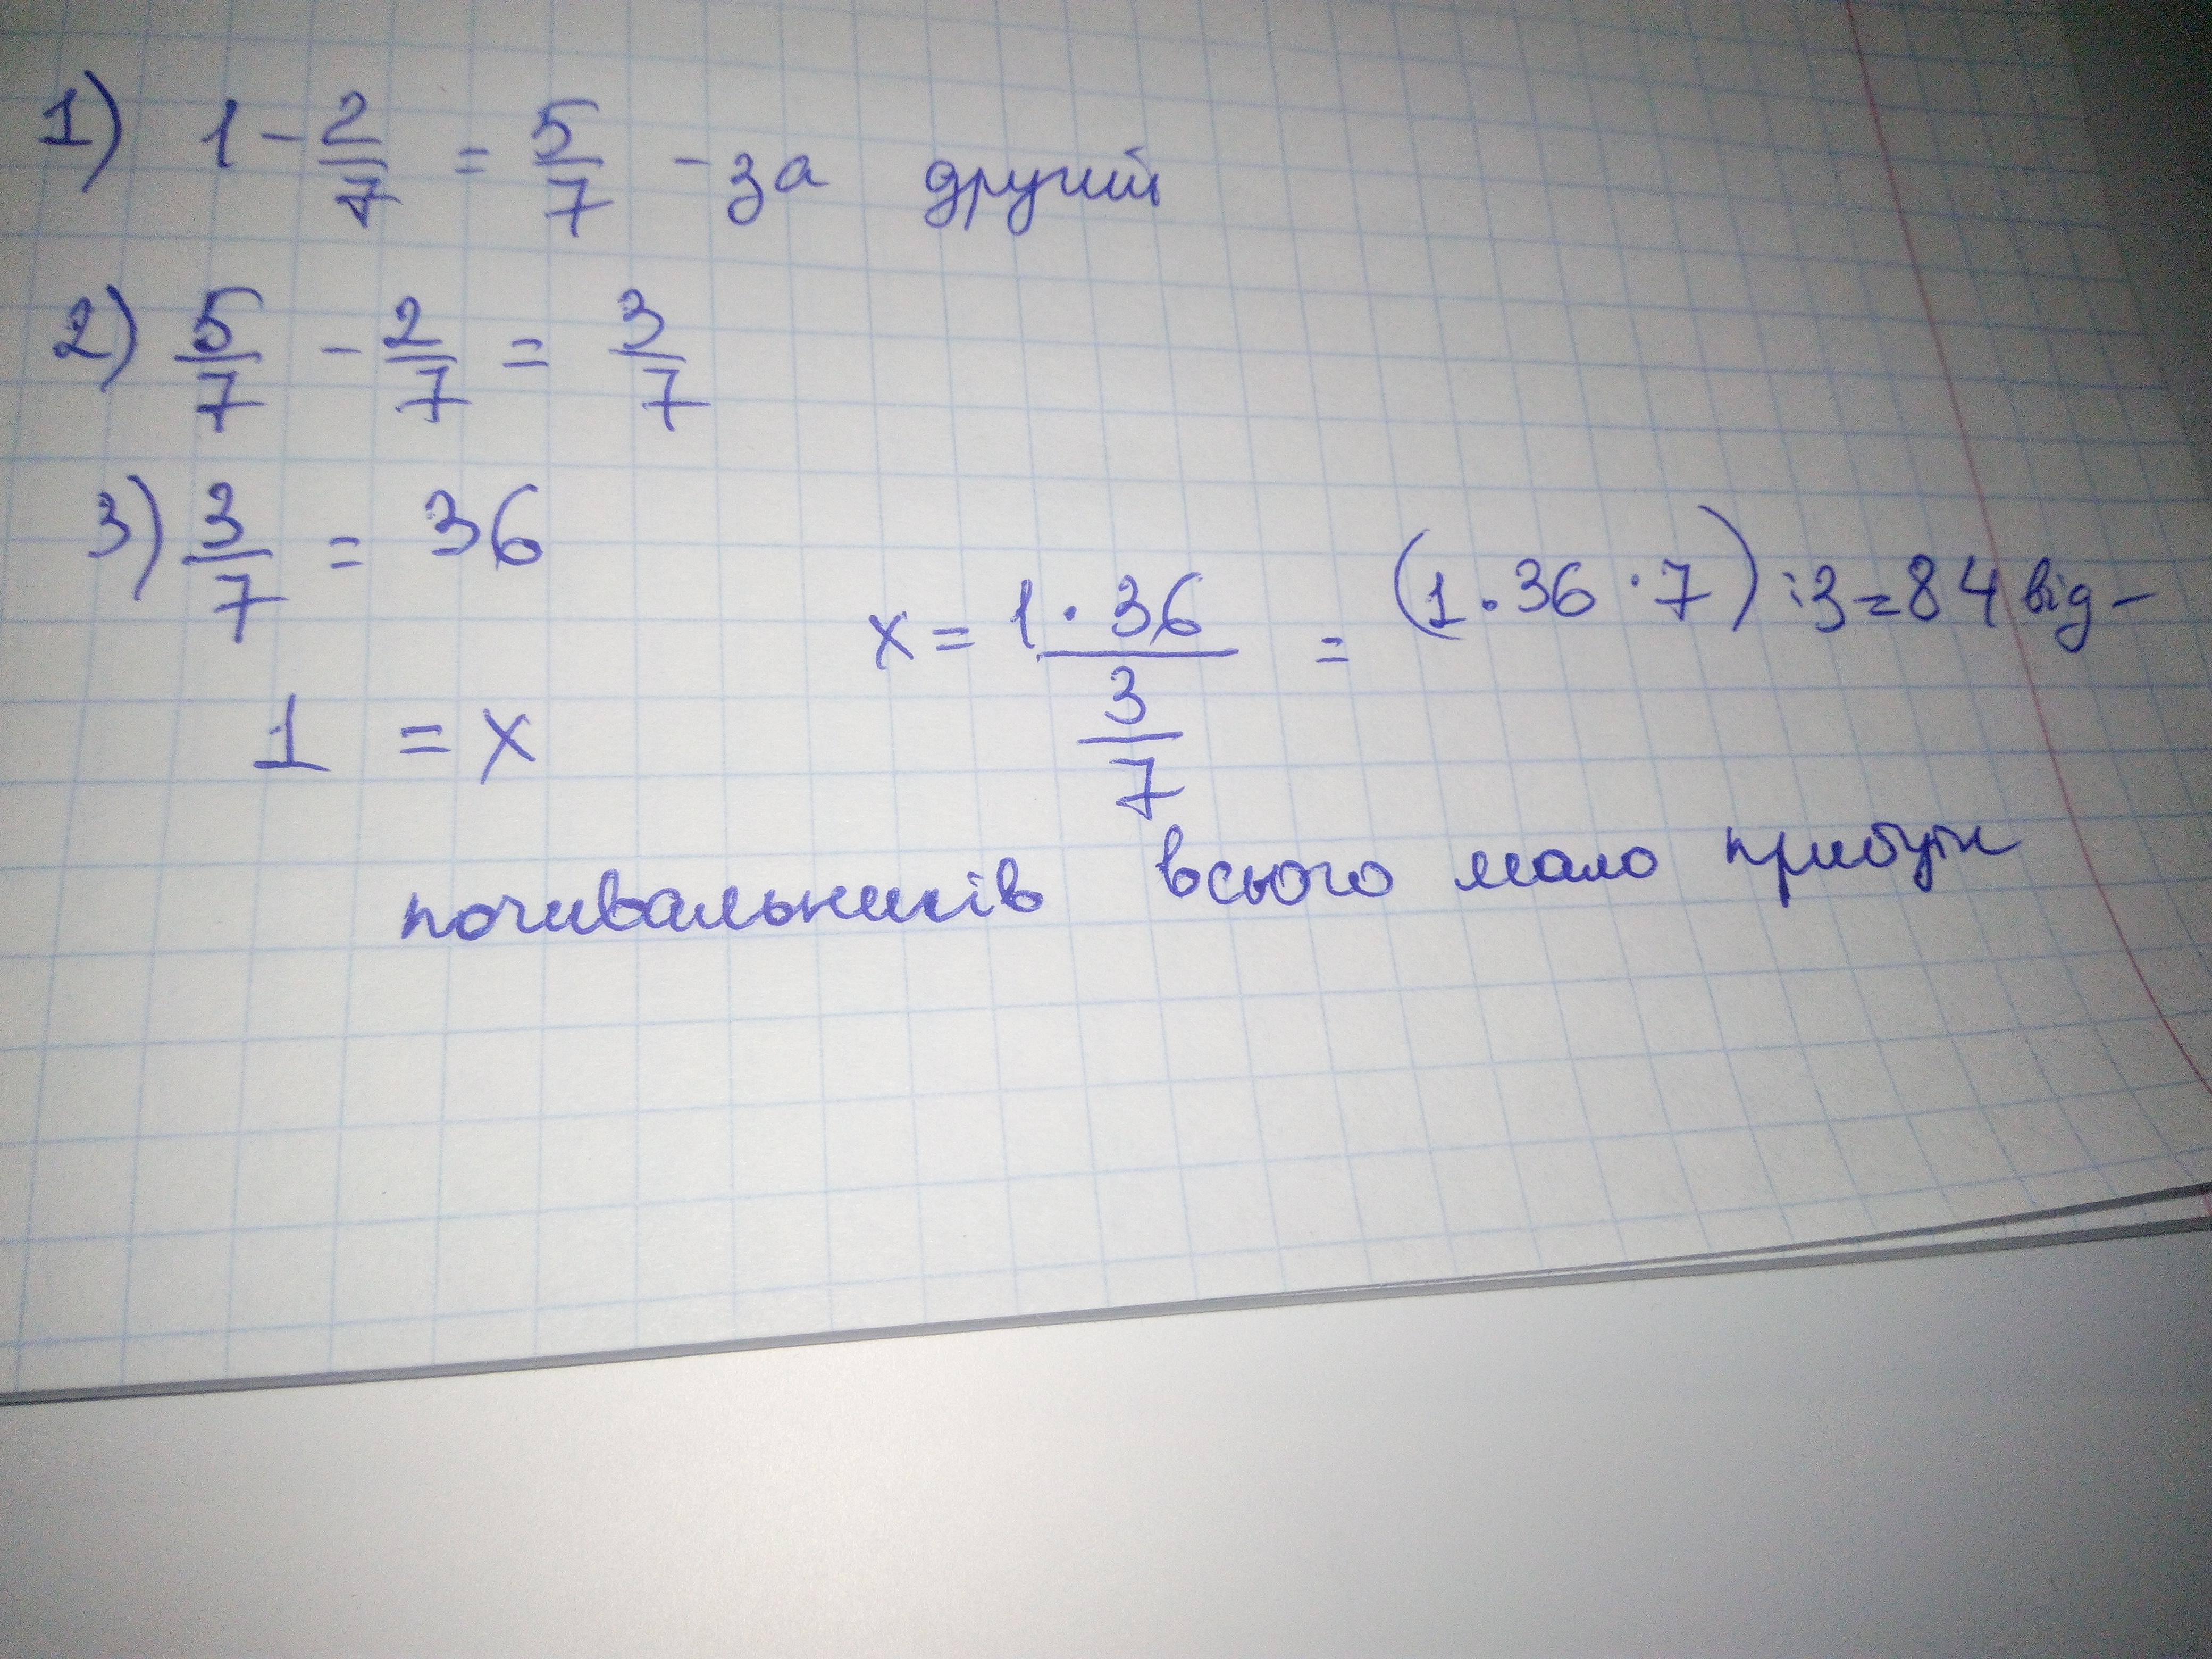 1) 1 - 2/7 = 5/7 - за другий
2) 5/7 - 2/7 = 3/7
3) 3/7 = 36
1 = x
x = (1 · 36)/(3/7) = (1 · 36 · 7) : 3 = 84 від-
почивальників всього мало прибути